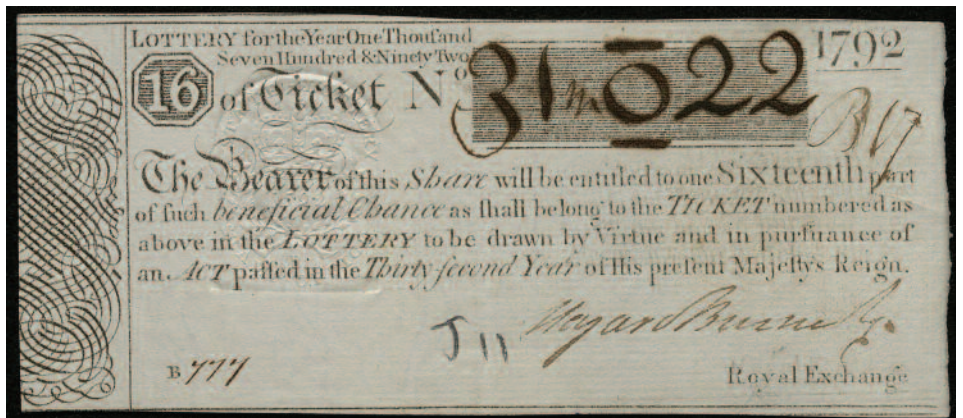 LOTTERY for the Year One Thouſand
Seven Hundred & Ninety Two
1792
16 of Ticket No 31m022
The Bearer of this Share will be entitled to one Sixteenth part
of ſuch beneficial Chance as ſhall belong to the TICKET numbered as
above in the LOTTERY to be drawn by Virtue and in purſuance of
an ACT paſſed in the Thirty-ſecond Year of His preſent Majeſty's Reign.
J 11
B 777
Royal Exchange